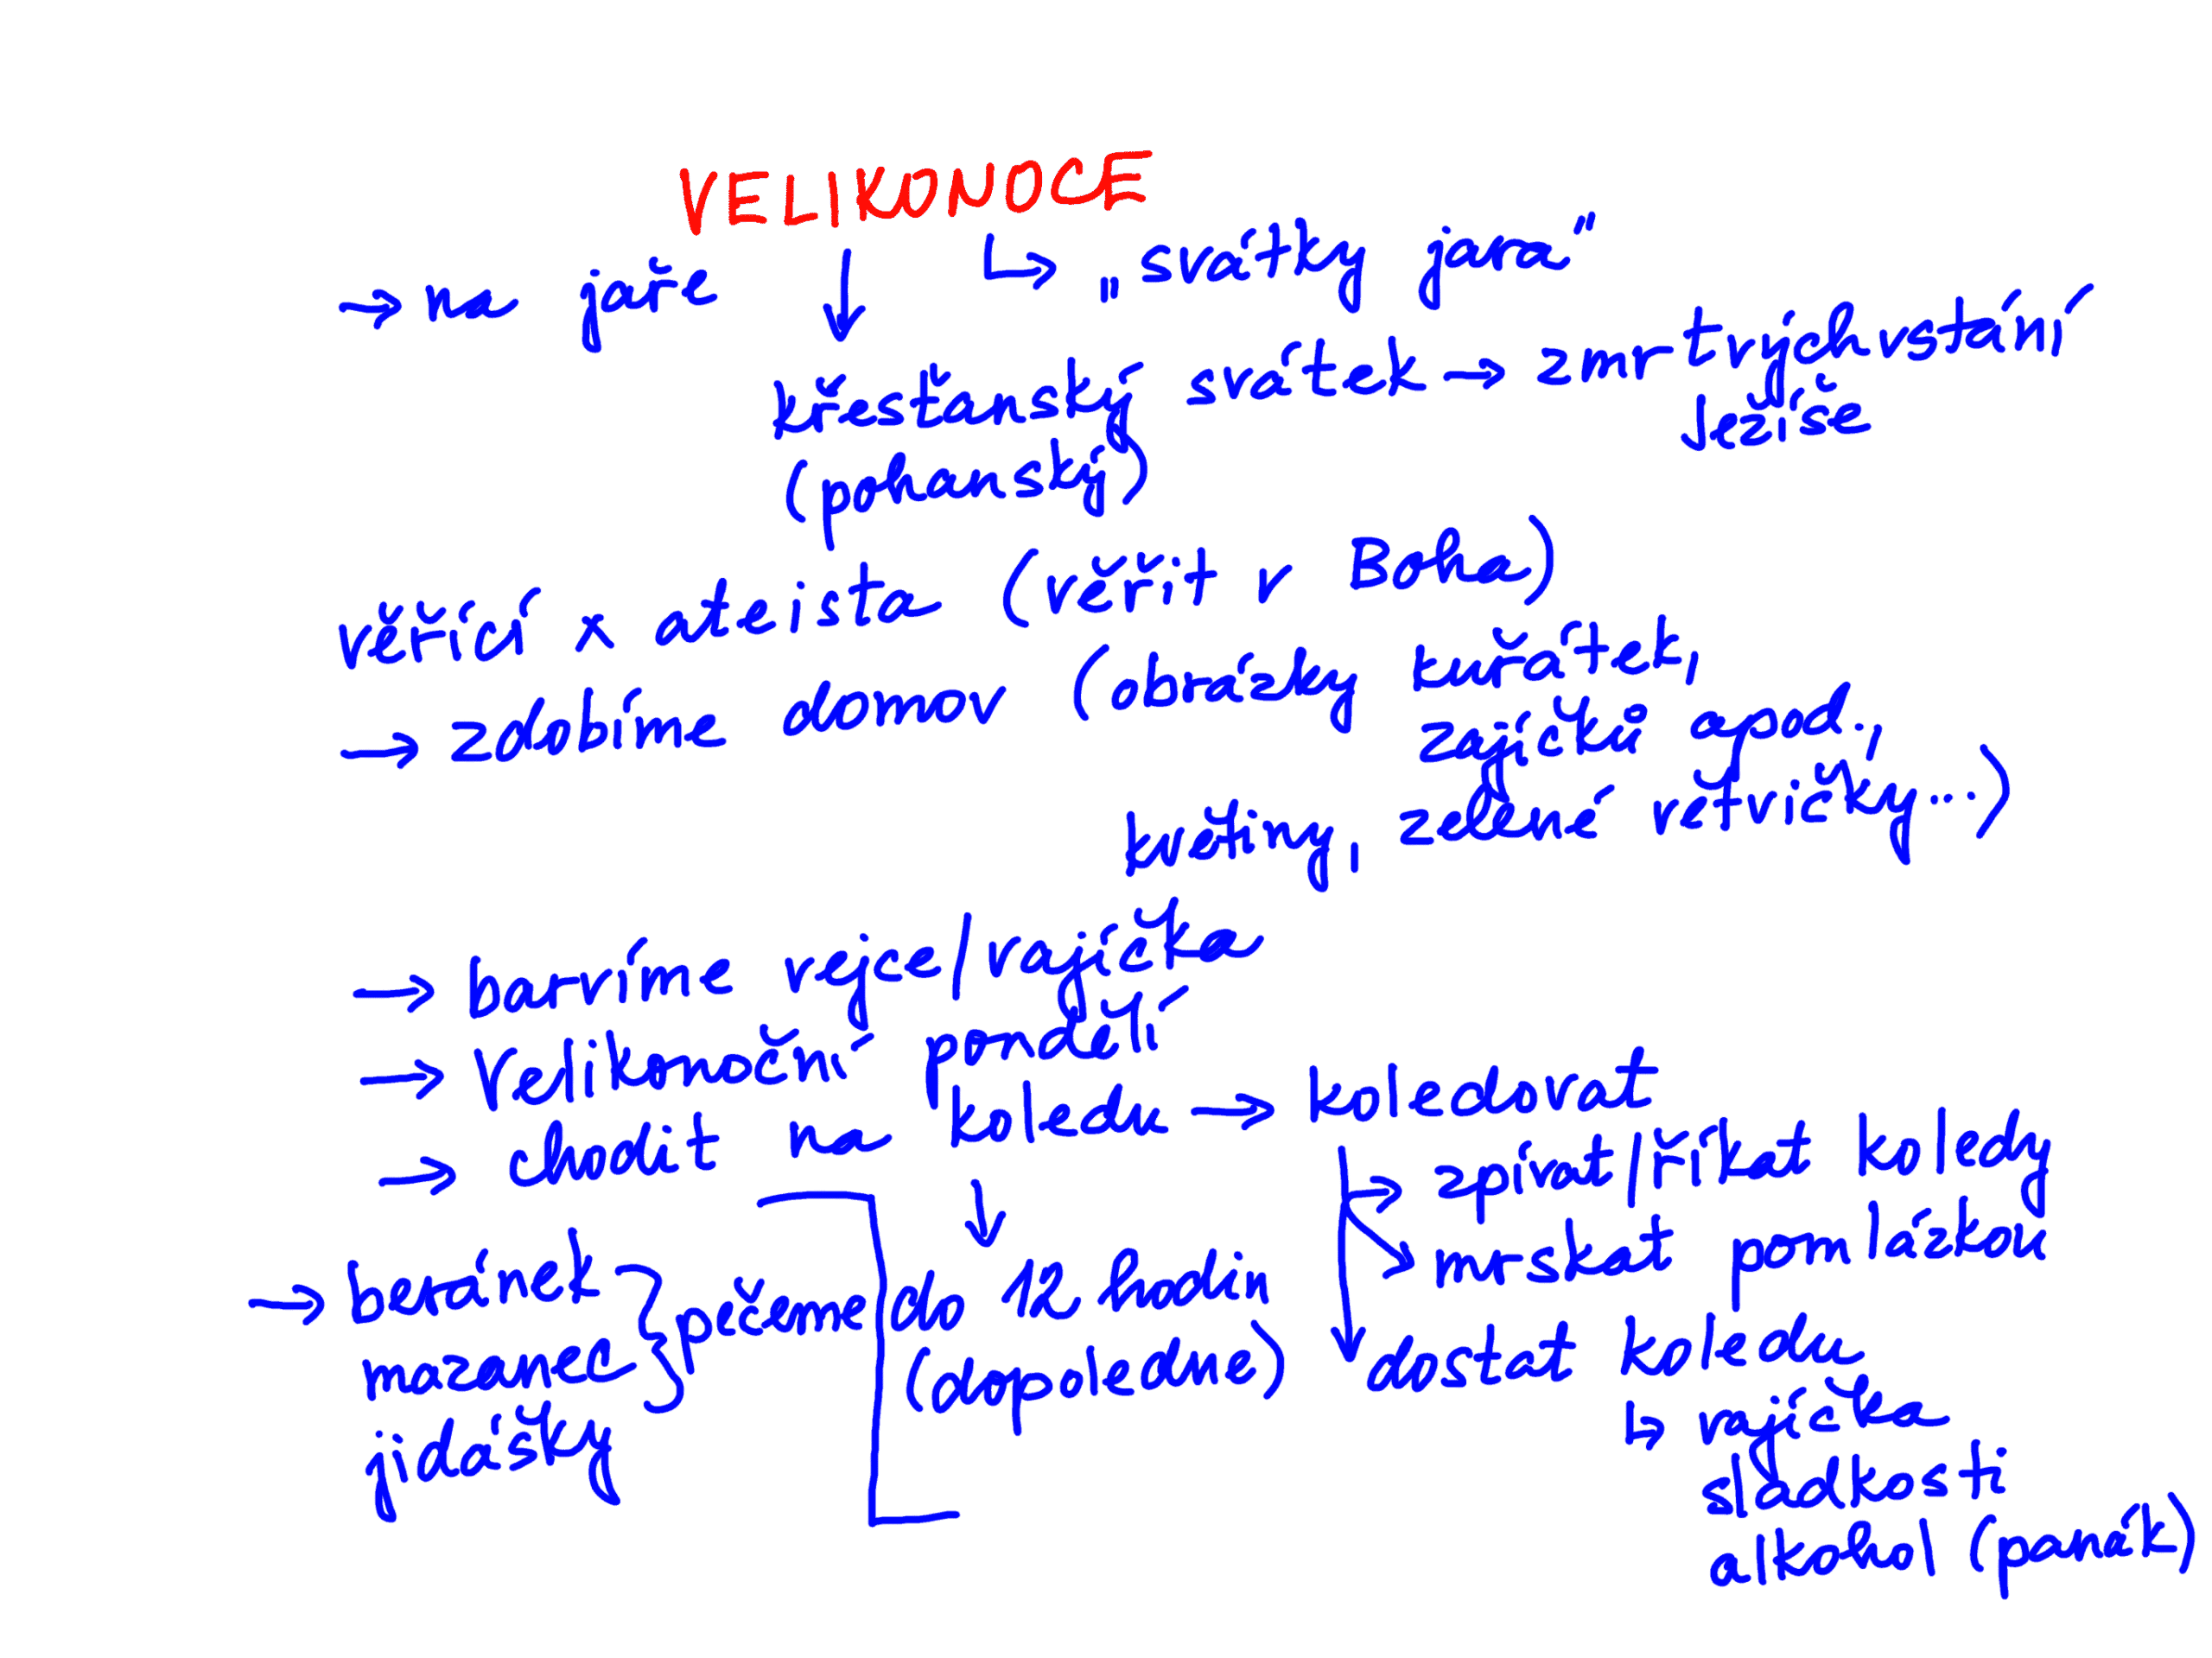 VELIKONOCE
→ na jaře
↳ „svátky jara"
↓
křesťanský svátek → zmrtvýchvstání
Ježíše
(pohanský)
věřící x ateista (věřit v Boha)
→ zdobíme domov (obrázky kuřátek,
zajíčků apod.,
květiny, zelené větvičky...)
→ barvíme vejce/vajíčka
→ Velikonoční pondělí
→ chodit na koledu → koledovat
→ zpívat/říkat koledy
mrskat pomlázkou
↓
do 12 hodin
(dopoledne)
dostat koledu
↳ vajíčka
sladkosti
alkohol (panák)
→ beránek
mazanec } pečeme
jidášky